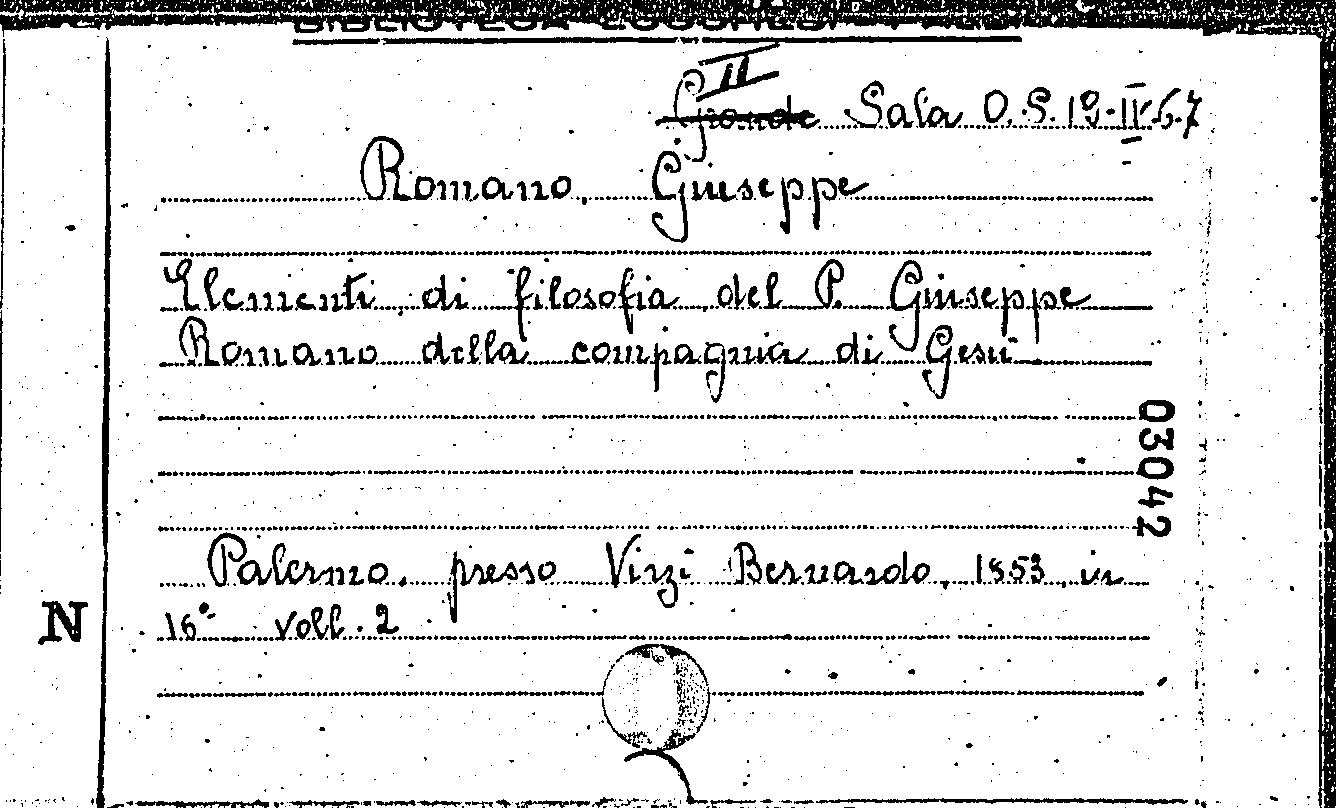 II
Grande Sala O.S. 19-II-67
Romano, Giuseppe
Elementi di filosofia del P. Giuseppe
Romano della compagnia di Gesù
03042
Palermo, presso Virzì Bernardo, 1853, in
N
16° voll. 2